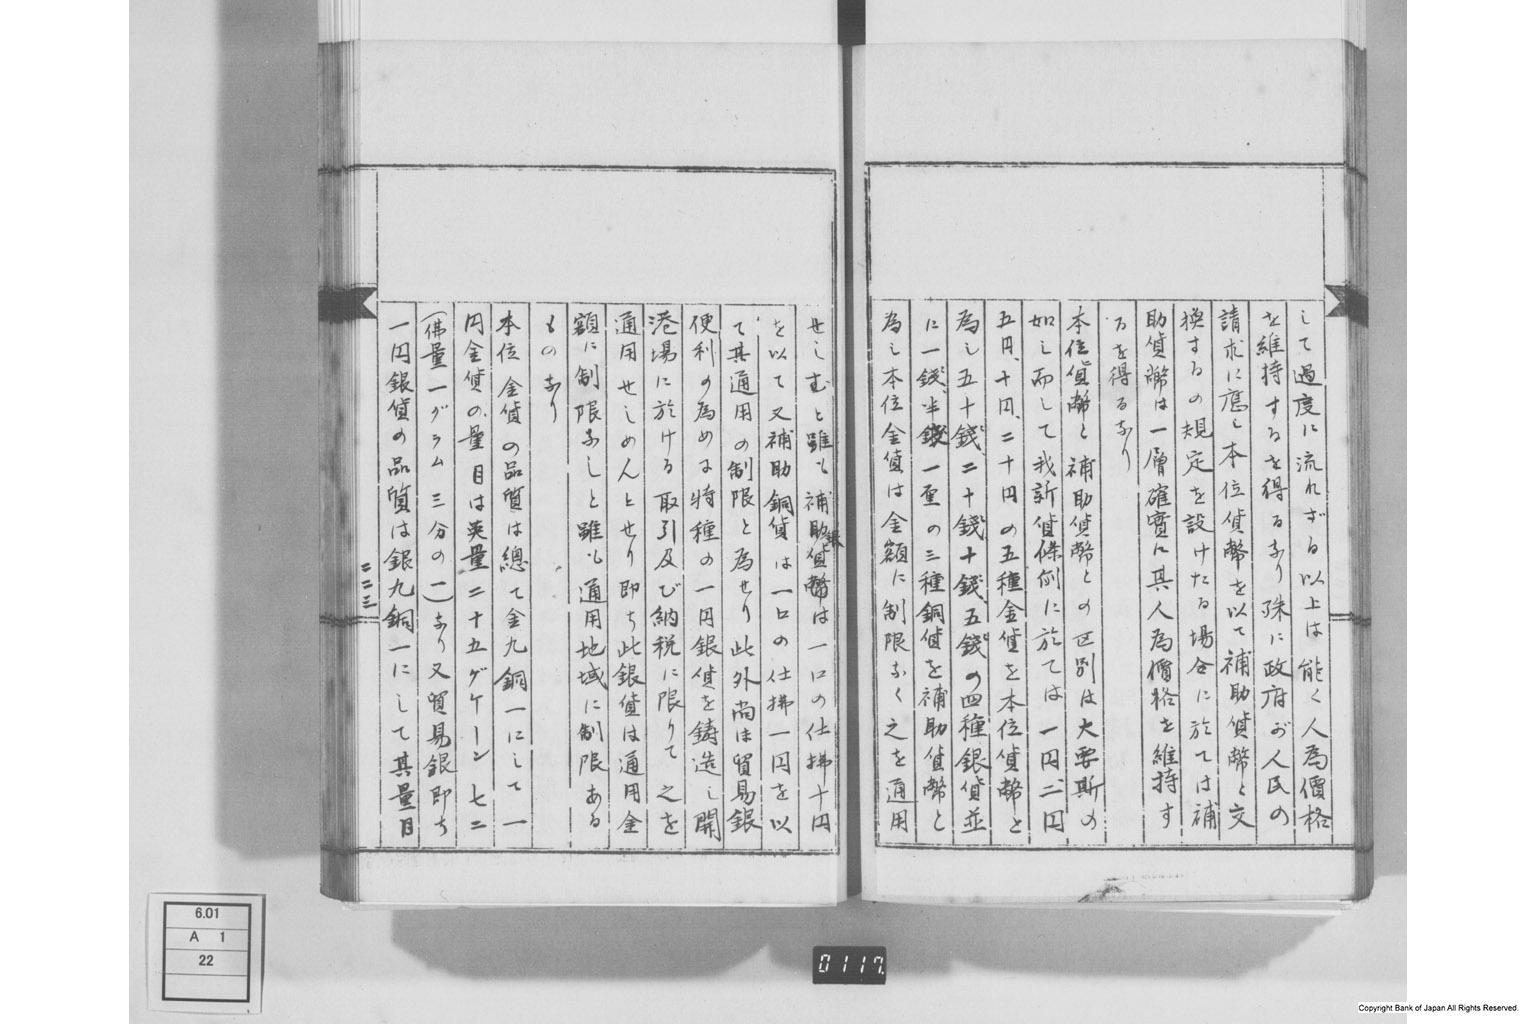 して過度に流れざる以上は能く人為價格
を維持するを得るなり殊に政府が人民の
請求に應し本位貨幣を以て補助貨幣と交
換するの規定を設けたる場合に於ては補
助貨幣は一層確實に其人為價格を維持す
るを得るなり
本位貨幣と補助貨幣との区別は大要斯の
如し而して我新貨條例に於ては一円、二円
五円、十円、二十円の五種金貨を本位貨幣と
為し五十錢、二十錢、十錢、五錢の四種銀貨並
に一錢、半錢、一厘の三種銅貨を補助貨幣と
為し本位金貨は金額に制限なく之を通用
せしむと雖も補助銀貨幣は一口の仕拂十円
を以て又補助銅貨は一口の仕拂一円を以
て其通用の制限と為せり此外尚ほ貿易銀
便利の為め特種の一円銀貨を鋳造し開
港場に於ける取引及び納税に限りて之を
通用せしめんとせり即ち此銀貨は通用金
額に制限なしと雖も通用地域に制限ある
ものなり
本位金貨の品質は總て金九銅一にして一
円金貨の量目は英量二十五ゲケーン七二
(佛量一グラム三分の二)なり又貿易銀即ち
一円銀貨の品質は銀九銅一にして其量目
二二三
6.01
A 1
22
0117
Copyright Bank of Japan All Rights Reserved.